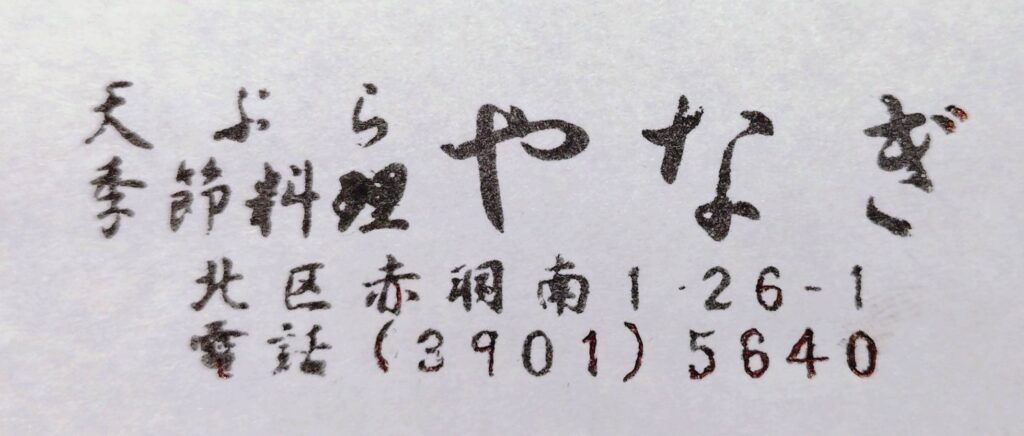 天ぷら
季節料理
やなぎ
北区赤羽南1-26-1
電話(3901)5640